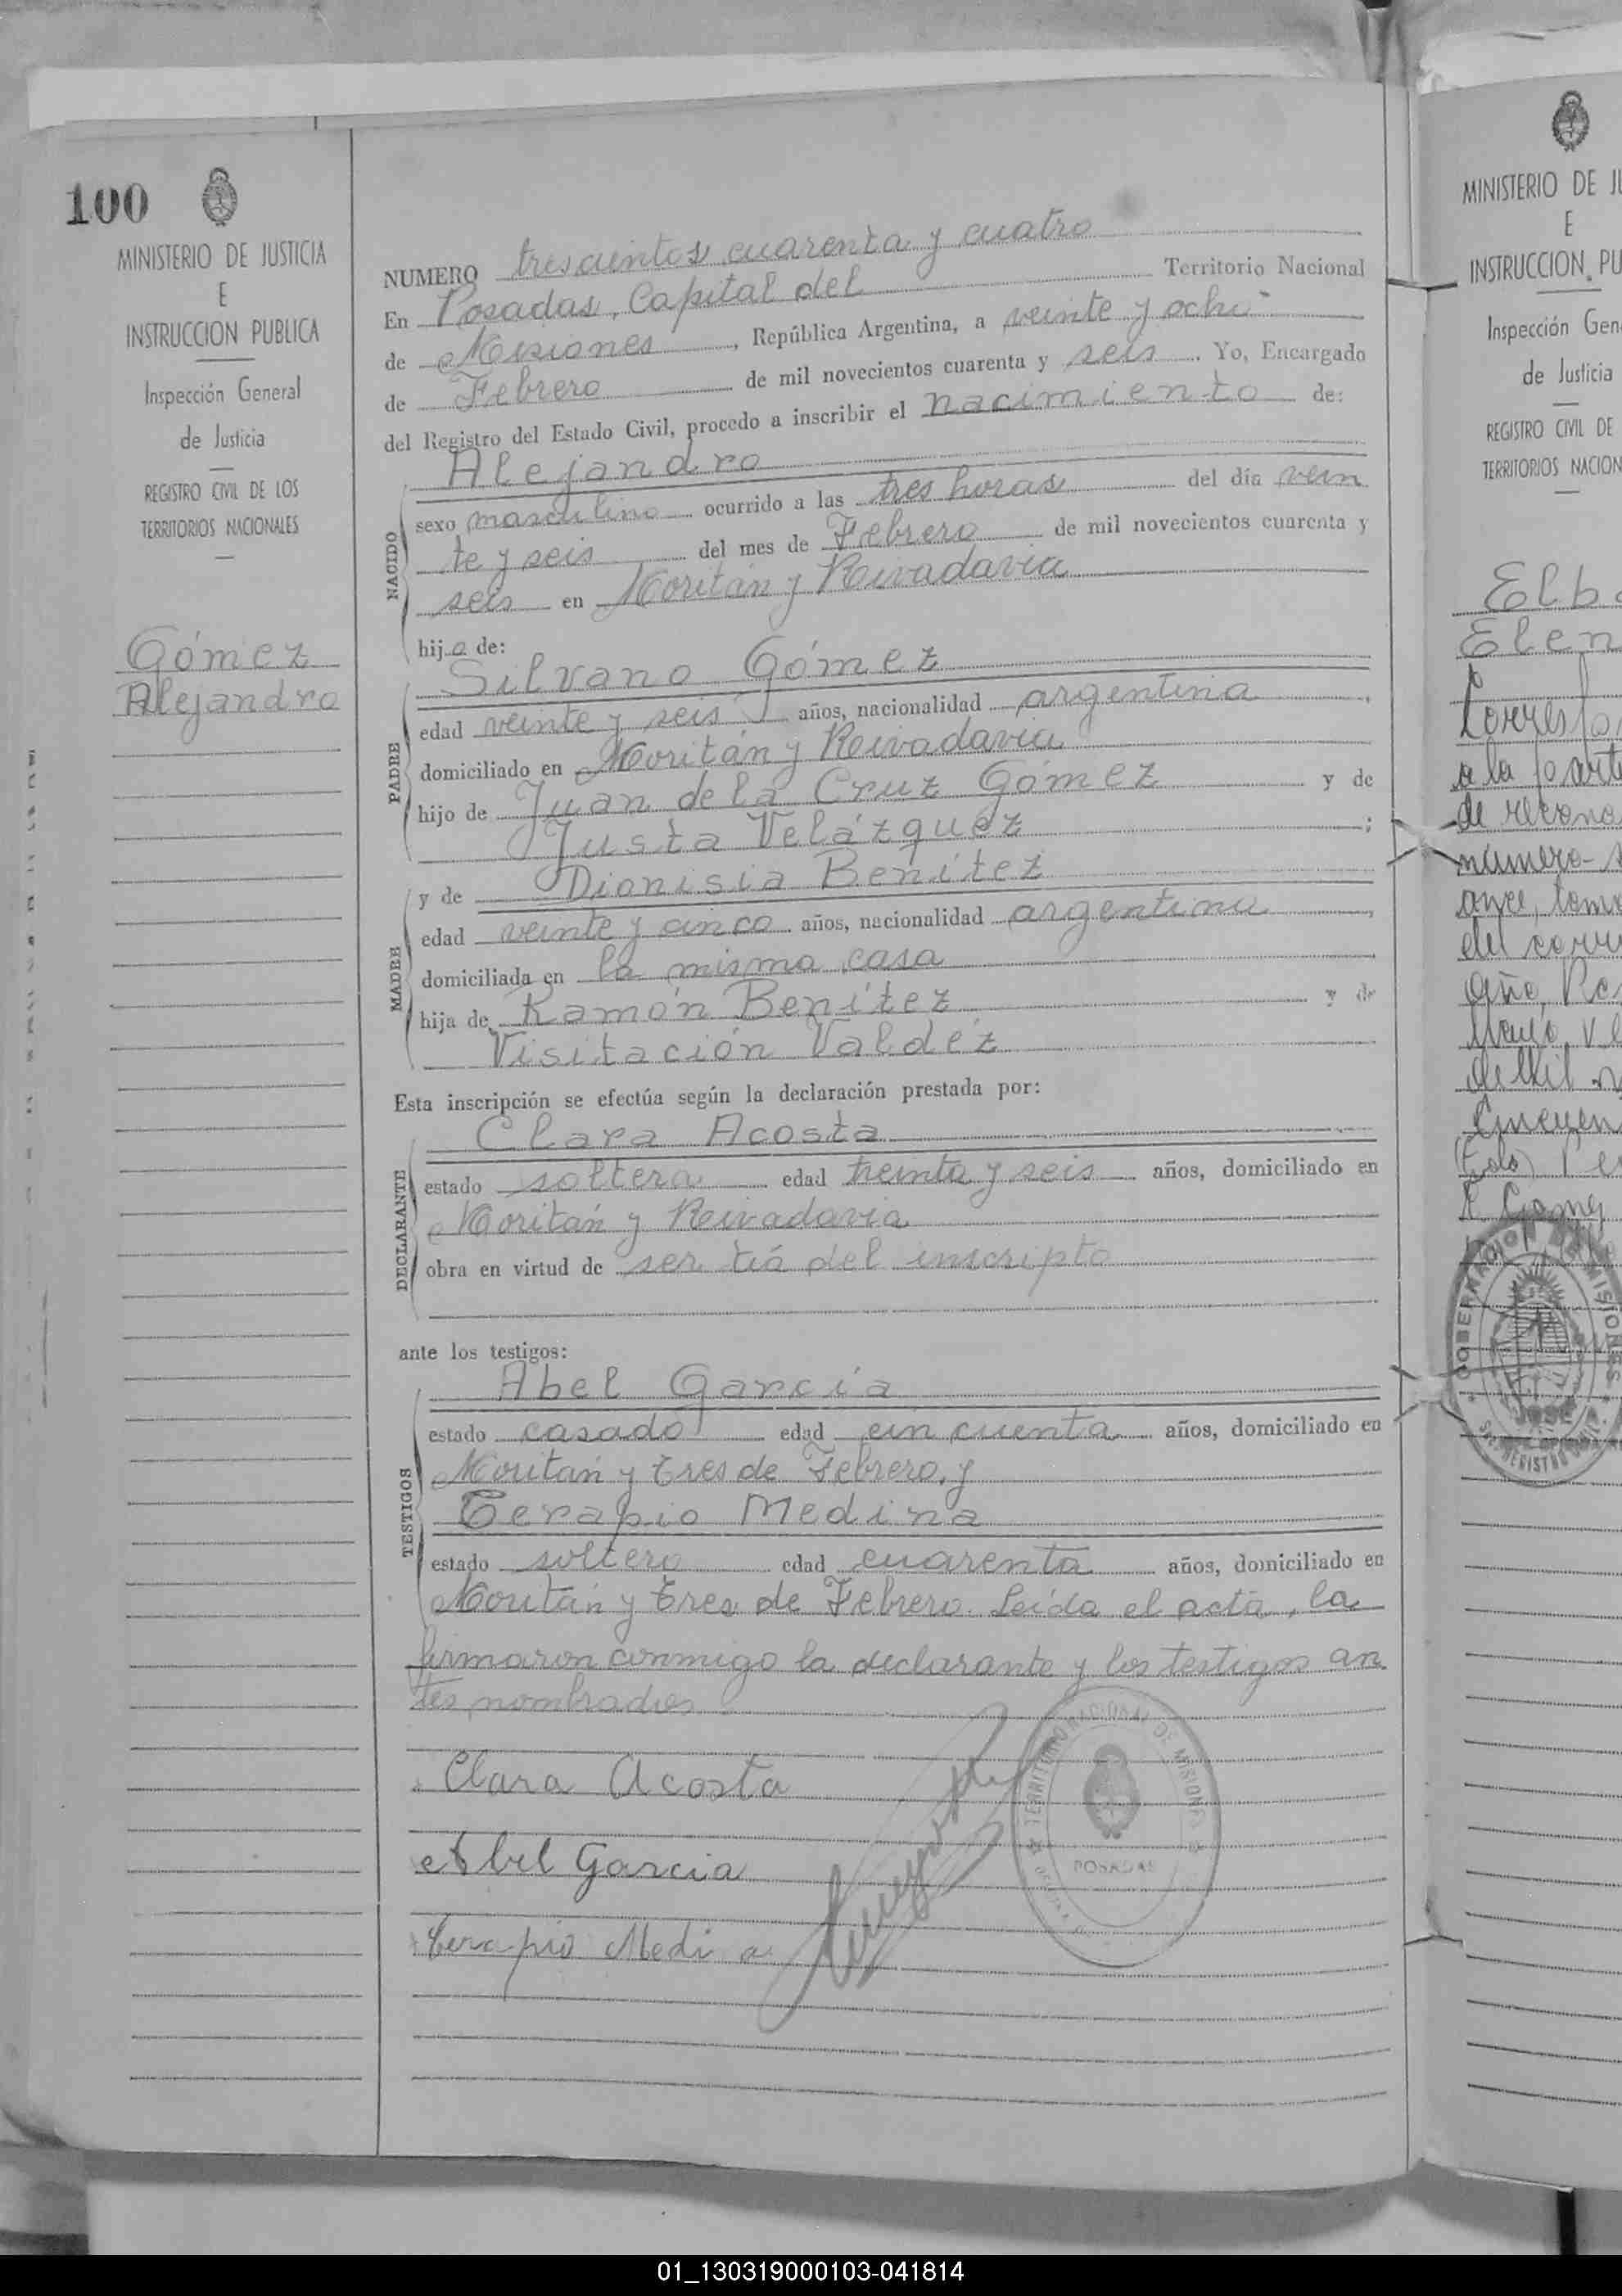 100
MINISTERIO DE JUSTICIA
E
INSTRUCCION PUBLICA
Inspección General
de Justicia
REGISTRO CIVIL DE LOS
TERRITORIOS NACIONALES
Gómez
Alejandro
NUMERO trescientos cuarenta y cuatro
En Posadas, Capital del Territorio Nacional
de Misiones, República Argentina, a veinte y ocho
de Febrero de mil novecientos cuarenta y seis. Yo, Encargado
del Registro del Estado Civil, procedo a inscribir el nacimiento de:
Alejandro
NACIDO
sexo masculino ocurrido a las tres horas del día vein
te y seis del mes de Febrero de mil novecientos cuarenta y
seis en Moritán y Rivadavia
hijo de:
Silvano Gómez
PADRE
edad veinte y seis años, nacionalidad argentina,
domiciliado en Moritán y Rivadavia
hijo de Juan de la Cruz Gómez y de
Justa Velázquez;
y de Dionisia Benítez
MADRE
edad veinte y cinco años, nacionalidad argentina,
domiciliada en la misma casa
hija de Ramón Benítez y de
Visitación Valdéz
Esta inscripción se efectúa según la declaración prestada por:
Clara Acosta
DECLARANTE
estado soltera edad treinta y seis años, domiciliado en
Moritán y Rivadavia
obra en virtud de ser tía del inscripto
ante los testigos:
Abel García
TESTIGOS
estado casado edad cincuenta años, domiciliado en
Moritán y tres de Febrero, y
Terapio Medina
estado soltero edad cuarenta años, domiciliado en
Moritán y tres de Febrero. Leída el acta, la
firmaron conmigo la declarante y los testigos an
tes nombrados
Clara Acosta
Abel Garcia
Terapio Medi a
TERRITORIO NACIONAL DE MISIONES
POSADAS
MINISTERIO DE JU
E
INSTRUCCION PU
Inspección Gen
de Justicia
REGISTRO CIVIL DE
TERRITORIOS NACION
Elb
Elen
Torres
a la parte
de recono
número
once, tomo
del corri
año,
Mayo
de Mil
Cincuen
GOBERNACION DE MISIONES
JOSE
REGISTRO CIVIL
01_130319000103-041814